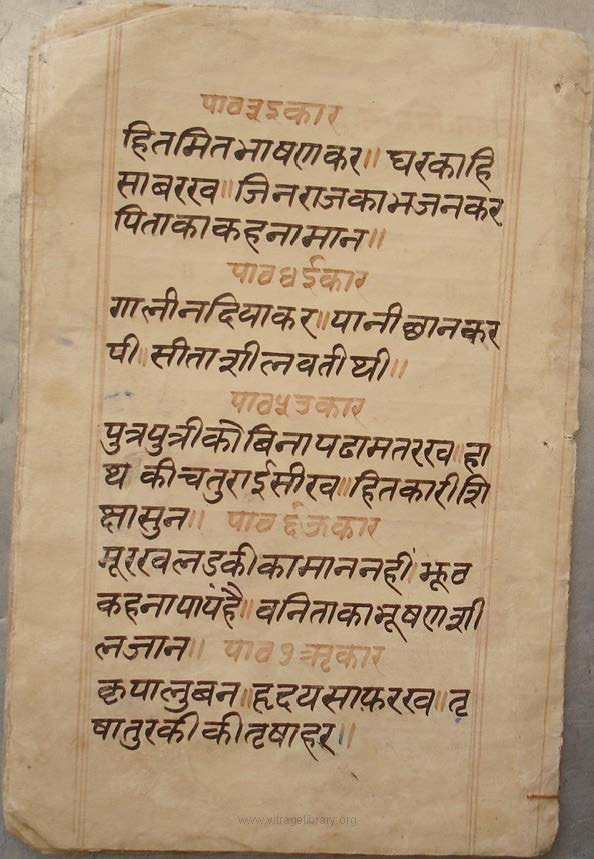 पाठ ३ इकार
हितमितभाषणकर॥ घरकाहि
साबरख॥जिनराजकाभजनकर
पिताकाकहनामान॥
पाठ ४ ईकार
गालीनदियाकर॥पानीछानकर
पी॥सीताशीलवतीथी॥
पाठ ५ उकार
पुत्रपुत्रीकोबिनापढामतरख॥हा
थ कीचतुराईसीख॥हितकारीशि
क्षासुन॥ पाठ ६ ऊकार
मूरखलडकीकामाननहीं॥झूठ
कहनापापहै॥ वनिताकाभूषणशी
लजान॥ पाठ ७ ऋकार
कृपालुबन॥हृदयसाफ़रख॥तृ
षातुरकीकीतृषाहर॥
www.vitragelibrary.org